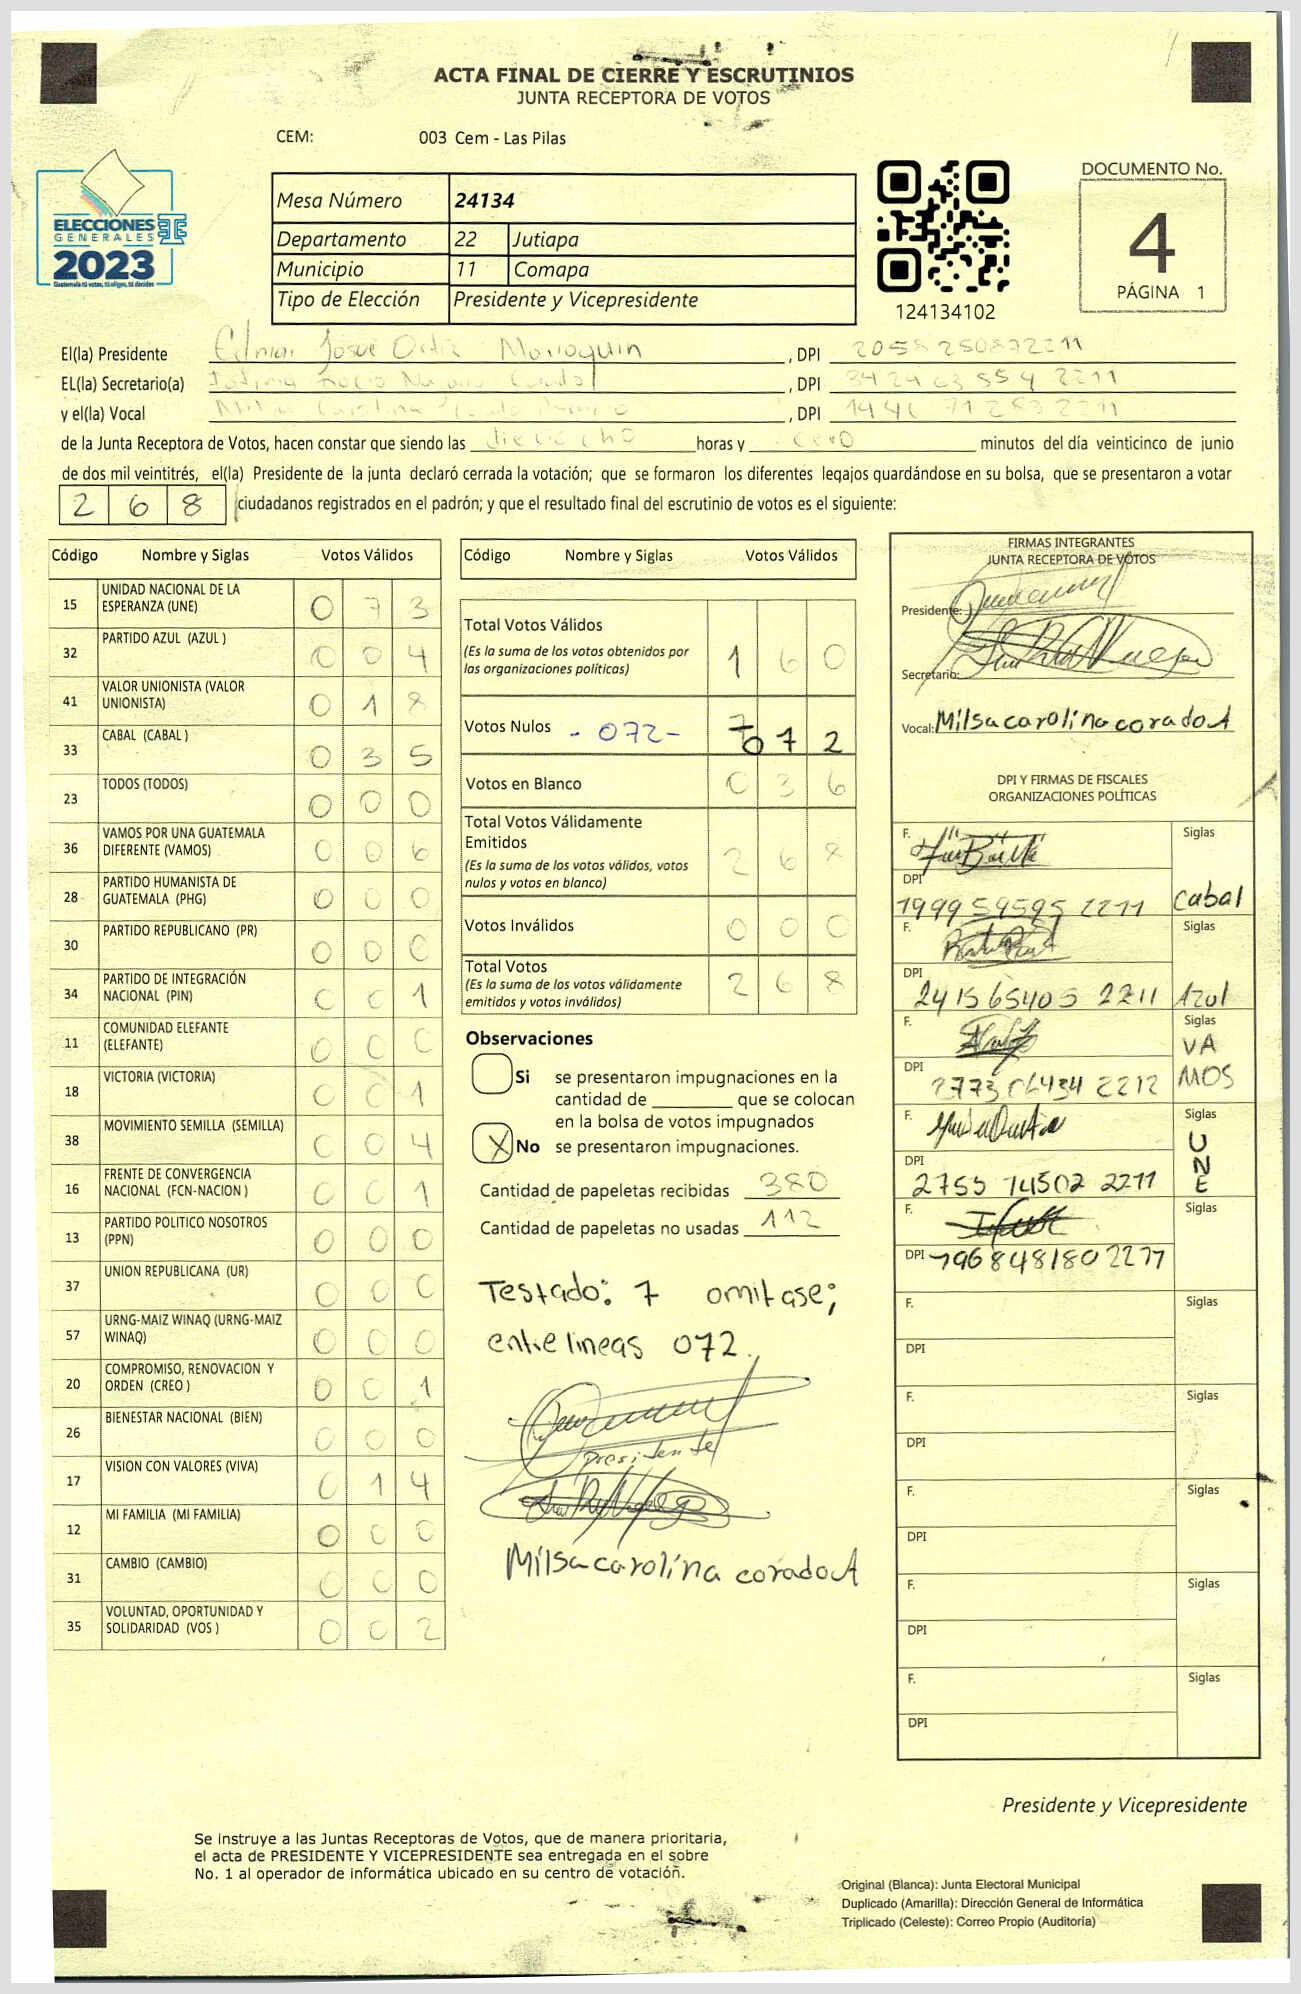 ACTA FINAL DE CIERRE Y ESCRUTINIOS
JUNTA RECEPTORA DE VOTOS
CEM: 003 Cem - Las Pilas
ELECCIONES
GENERALES
2023
Guatemala tú votas, tú eliges, tú decides
Mesa Número 24134
Departamento 22 Jutiapa
Municipio 11 Comapa
Tipo de Elección Presidente y Vicepresidente
124134102
DOCUMENTO No.
4
PÁGINA 1
El(la) Presidente Josue Ortiz Marroquin , DPI 2058 250872211
EL(la) Secretario(a) , DPI
y el(la) Vocal , DPI
de la Junta Receptora de Votos, hacen constar que siendo las dieciocho horas y cero minutos del día veinticinco de junio
de dos mil veintitrés, el(la) Presidente de la junta declaró cerrada la votación; que se formaron los diferentes legajos guardándose en su bolsa, que se presentaron a votar
268 ciudadanos registrados en el padrón; y que el resultado final del escrutinio de votos es el siguiente:
Código Nombre y Siglas Votos Válidos
15 UNIDAD NACIONAL DE LA ESPERANZA (UNE) 0 7 3
32 PARTIDO AZUL (AZUL ) 0 0 4
41 VALOR UNIONISTA (VALOR UNIONISTA) 0 1 8
33 CABAL (CABAL ) 0 3 5
23 TODOS (TODOS) 0 0 0
36 VAMOS POR UNA GUATEMALA DIFERENTE (VAMOS) 0 0 6
28 PARTIDO HUMANISTA DE GUATEMALA (PHG) 0 0 0
30 PARTIDO REPUBLICANO (PR) 0 0 0
34 PARTIDO DE INTEGRACIÓN NACIONAL (PIN) 0 0 1
11 COMUNIDAD ELEFANTE (ELEFANTE) 0 0 0
18 VICTORIA (VICTORIA) 0 0 1
38 MOVIMIENTO SEMILLA (SEMILLA) 0 0 4
16 FRENTE DE CONVERGENCIA NACIONAL (FCN-NACION ) 0 0 1
13 PARTIDO POLITICO NOSOTROS (PPN) 0 0 0
37 UNION REPUBLICANA (UR) 0 0 0
57 URNG-MAIZ WINAQ (URNG-MAIZ WINAQ) 0 0 0
20 COMPROMISO, RENOVACION Y ORDEN (CREO ) 0 0 1
26 BIENESTAR NACIONAL (BIEN) 0 0 0
17 VISION CON VALORES (VIVA) 0 1 4
12 MI FAMILIA (MI FAMILIA) 0 0 0
31 CAMBIO (CAMBIO) 0 0 0
35 VOLUNTAD, OPORTUNIDAD Y SOLIDARIDAD (VOS ) 0 0 2
Código Nombre y Siglas Votos Válidos
Total Votos Válidos 1 6 0
(Es la suma de los votos obtenidos por
las organizaciones políticas)
Votos Nulos - 072- 0 7 2
Votos en Blanco 0 3 6
Total Votos Válidamente
Emitidos 2 6 8
(Es la suma de los votos válidos, votos
nulos y votos en blanco)
Votos Inválidos 0 0 0
Total Votos 2 6 8
(Es la suma de los votos válidamente
emitidos y votos inválidos)
Observaciones
Si se presentaron impugnaciones en la
cantidad de ________ que se colocan
en la bolsa de votos impugnados
X No se presentaron impugnaciones.
Cantidad de papeletas recibidas 380
Cantidad de papeletas no usadas 112
Testado: 7 omitase;
entre lineas 072.
Presidente
Milsa carolina corado A
FIRMAS INTEGRANTES
JUNTA RECEPTORA DE VOTOS
Presidente:
Secretario:
Vocal: Milsa carolina corado A
DPI Y FIRMAS DE FISCALES
ORGANIZACIONES POLÍTICAS
F. Siglas
DPI 1999 59595 2211 Cabal
F. Siglas
DPI 2415 65405 2211 Azul
F. Siglas
DPI 2773 06434 2212 VAMOS
F. Siglas
DPI 2755 14502 2211 UNE
F. Siglas
DPI 1968481802211
F. Siglas
DPI
F. Siglas
DPI
F. Siglas
DPI
F. Siglas
DPI
F. Siglas
DPI
Presidente y Vicepresidente
Se instruye a las Juntas Receptoras de Votos, que de manera prioritaria,
el acta de PRESIDENTE Y VICEPRESIDENTE sea entregada en el sobre
No. 1 al operador de informática ubicado en su centro de votación.
Original (Blanca): Junta Electoral Municipal
Duplicado (Amarilla): Dirección General de Informática
Triplicado (Celeste): Correo Propio (Auditoría)